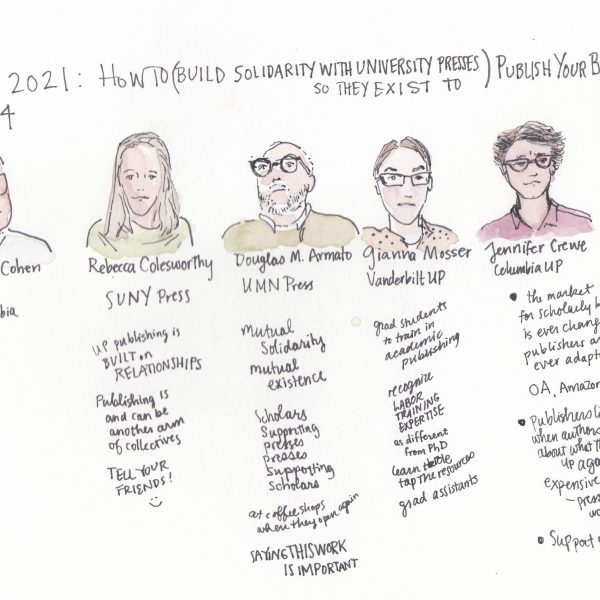 2021: HOW TO (BUILD SOLIDARITY WITH UNIVERSITY PRESSES SO THEY EXIST TO) PUBLISH YOUR B
4
Cohen
bia
Rebecca Colesworthy
SUNY Press
UP publishing is
BUILT on
RELATIONSHIPS
Publishing is
and can be
another arm
of collectives
TELL YOUR
FRIENDS!
Douglas M. Armato
UMN Press
mutual
Solidarity
mutual
existence
Scholars
Supporting
presses
presses
Supporting
Scholars
at coffee shops
when they open again
SAYING THIS WORK
IS IMPORTANT
Gianna Mosser
Vanderbilt UP
grad students
to train in
academic
publishing
recognize
LABOR
TRAINING
EXPERTISE
as different
from PhD
learn
tap the resources
grad assistants
Jennifer Crewe
Columbia UP
• the market
for scholarly b
is ever chang
publishers a
ever adapt
OA, Amazon
• Publishers li
when authors
about what th
up aga
expensive
– press
wo
• Support